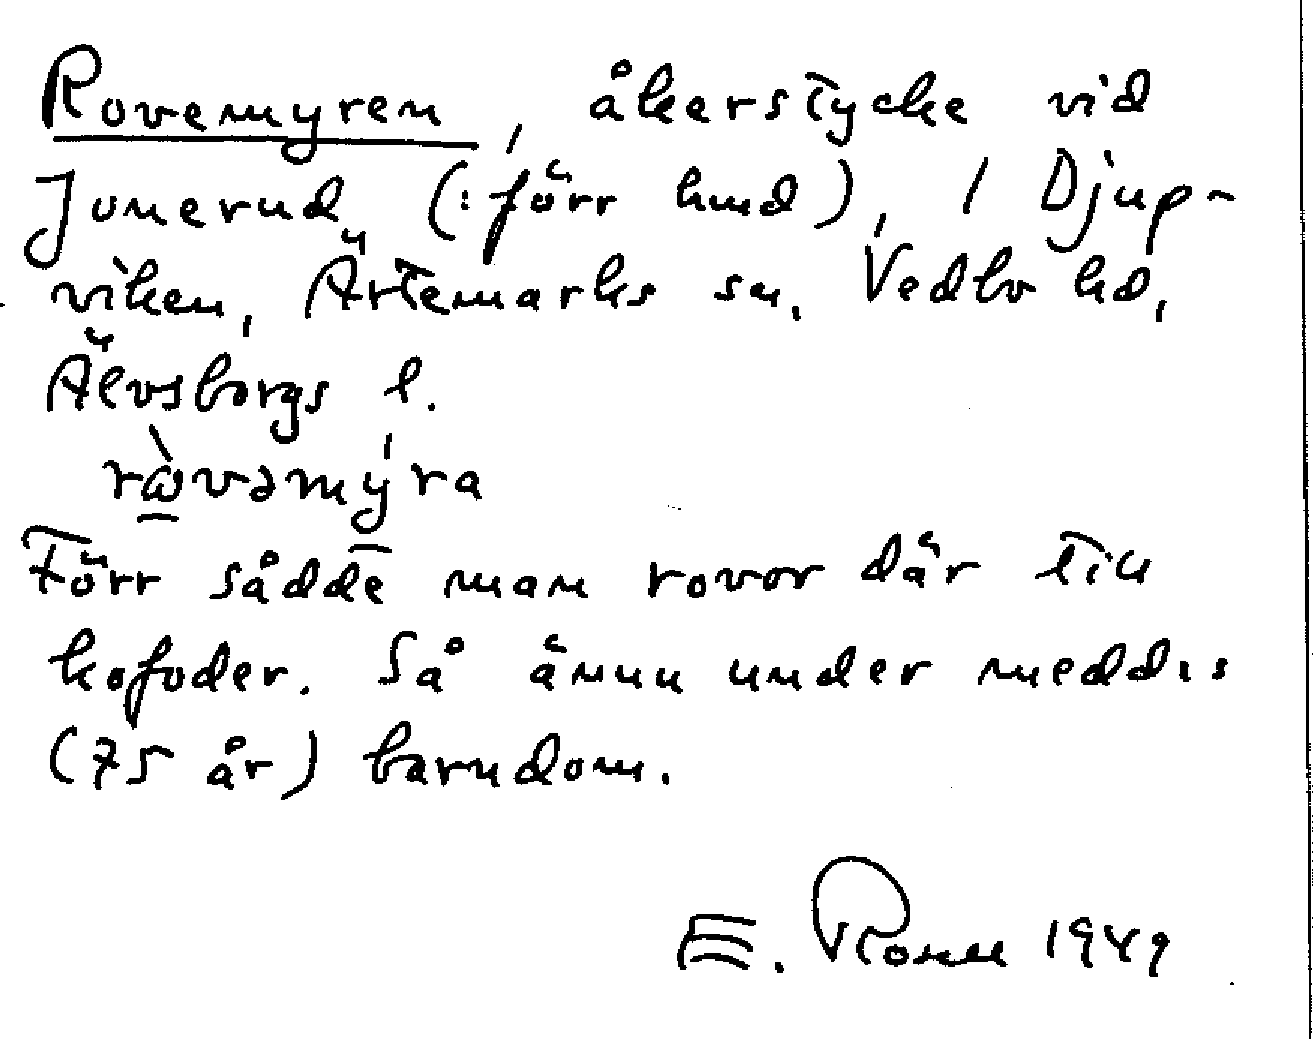 Rovemyren, åkerstycke vid
Jonerud (: förr hmd), 1 Djup-
viken, Ärtemarks sn, Vedbo hd,
Älvsborgs l.
rὼvəmýra
Förr sådde man rovor där till
kofoder. Så ännu under medd:s
(75 år) barndom.
E. Rosell 1949